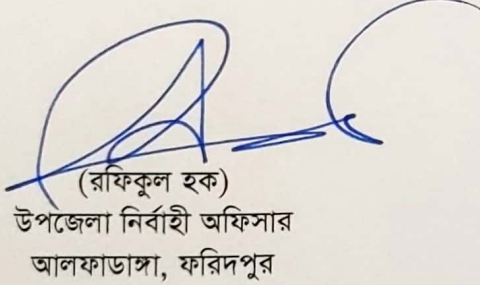 (রফিকুল হক)
উপজেলা নির্বাহী অফিসার
আলফাডাঙ্গা, ফরিদপুর